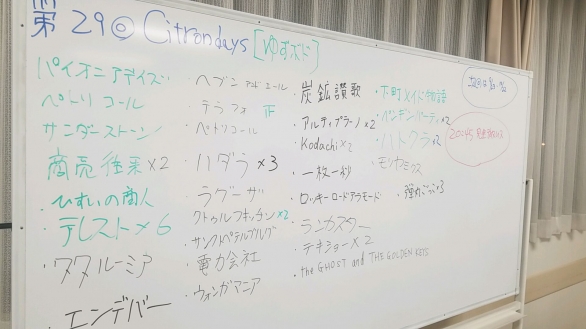 第29回 Citrondays [ゆずボド]
パイオニアデイズ
ペトリコール
サンダーストーン
商売往来×2
ひすいの商人
テレストラ×6
タタルーミア
エンデバー
・ヘブン アンド エール
・テラフォ 正
・ペトリコール
・ハダラ×3
・ラグーサ
クトゥルフキッチン×2
・サンクトペテルブルグ
・電力会社
・ウォンガマニア
・炭鉱讃歌
・アルティプラーノ×2
Kodachi×2
・一枚一秒
・ロッキーロードアラモード
・ランカスター
・テキショー×2
・the GHOST and THE GOLDEN KEYS
・下町メイド物語
・ペンギンパーティ×2
・ハトクラ×2
・モンガミクス